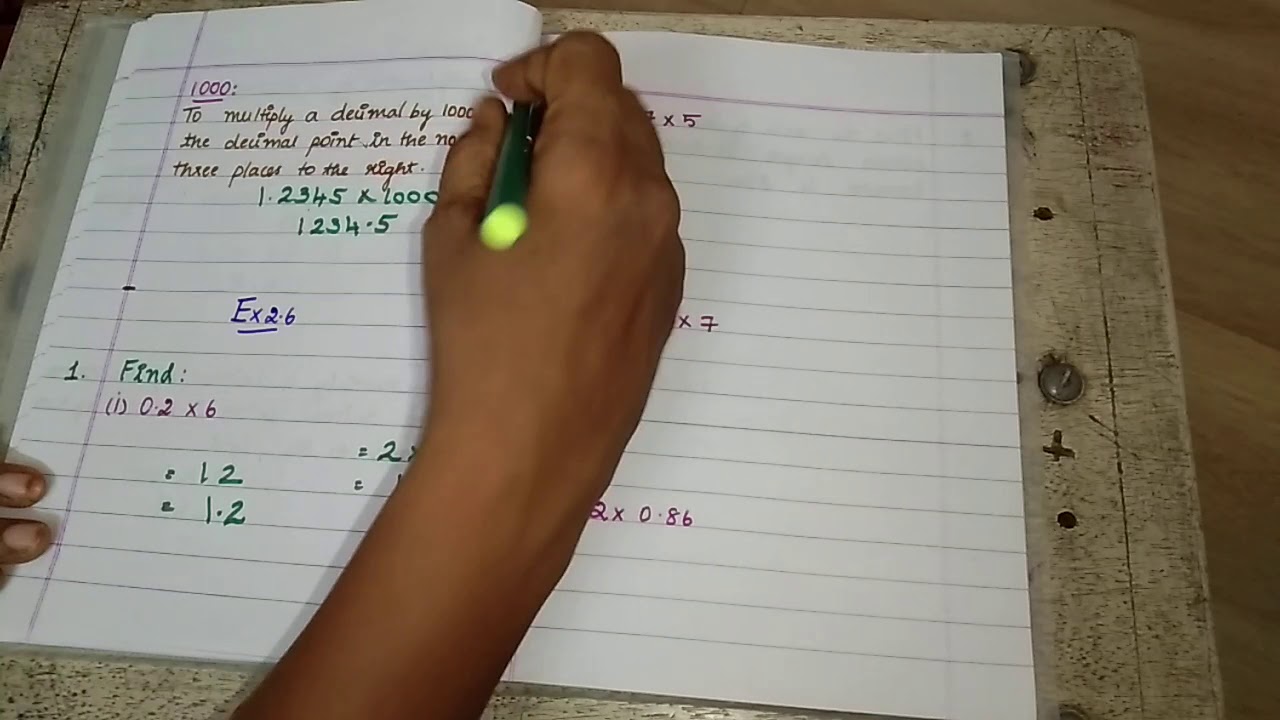 1000:
To multiply a decimal by 1000
the decimal point in the
three places to the right.
1.2345 x 1000
1234.5
Ex 2.6
1. Find:
(i) 0.2 x 6
= 12
= 1.2
= 2
=
x 5
x 7
2 x 0.86